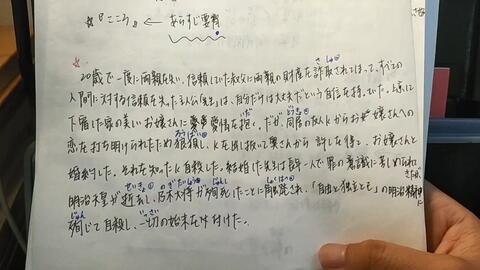 ☆『こころ』 ← あらすじ要約
20歳で一度に両親を失い、信頼していた叔父に両親の財産を詐取されてしまって、すべての
人間に対する信頼を失った主人公「先生」は、自分だけは大丈夫だという自信を持っていた。上京して
下宿した家の美しいお嬢さんに愛情を抱く。だが、同居の友人Kからお嬢さんへの
恋を打ち明けられたため狼狽し、Kを出し抜いて奥さんから許しを得て、お嬢さんと
婚約した。それを知ったK自殺した。結婚した先生は長年一人で罪の意識に苦しめられ
明治天皇が逝去し、乃木大将が殉死したことに触発され、「自由と独立とも」の明治精神に
殉じて自殺し、一切の始末を片付けた。